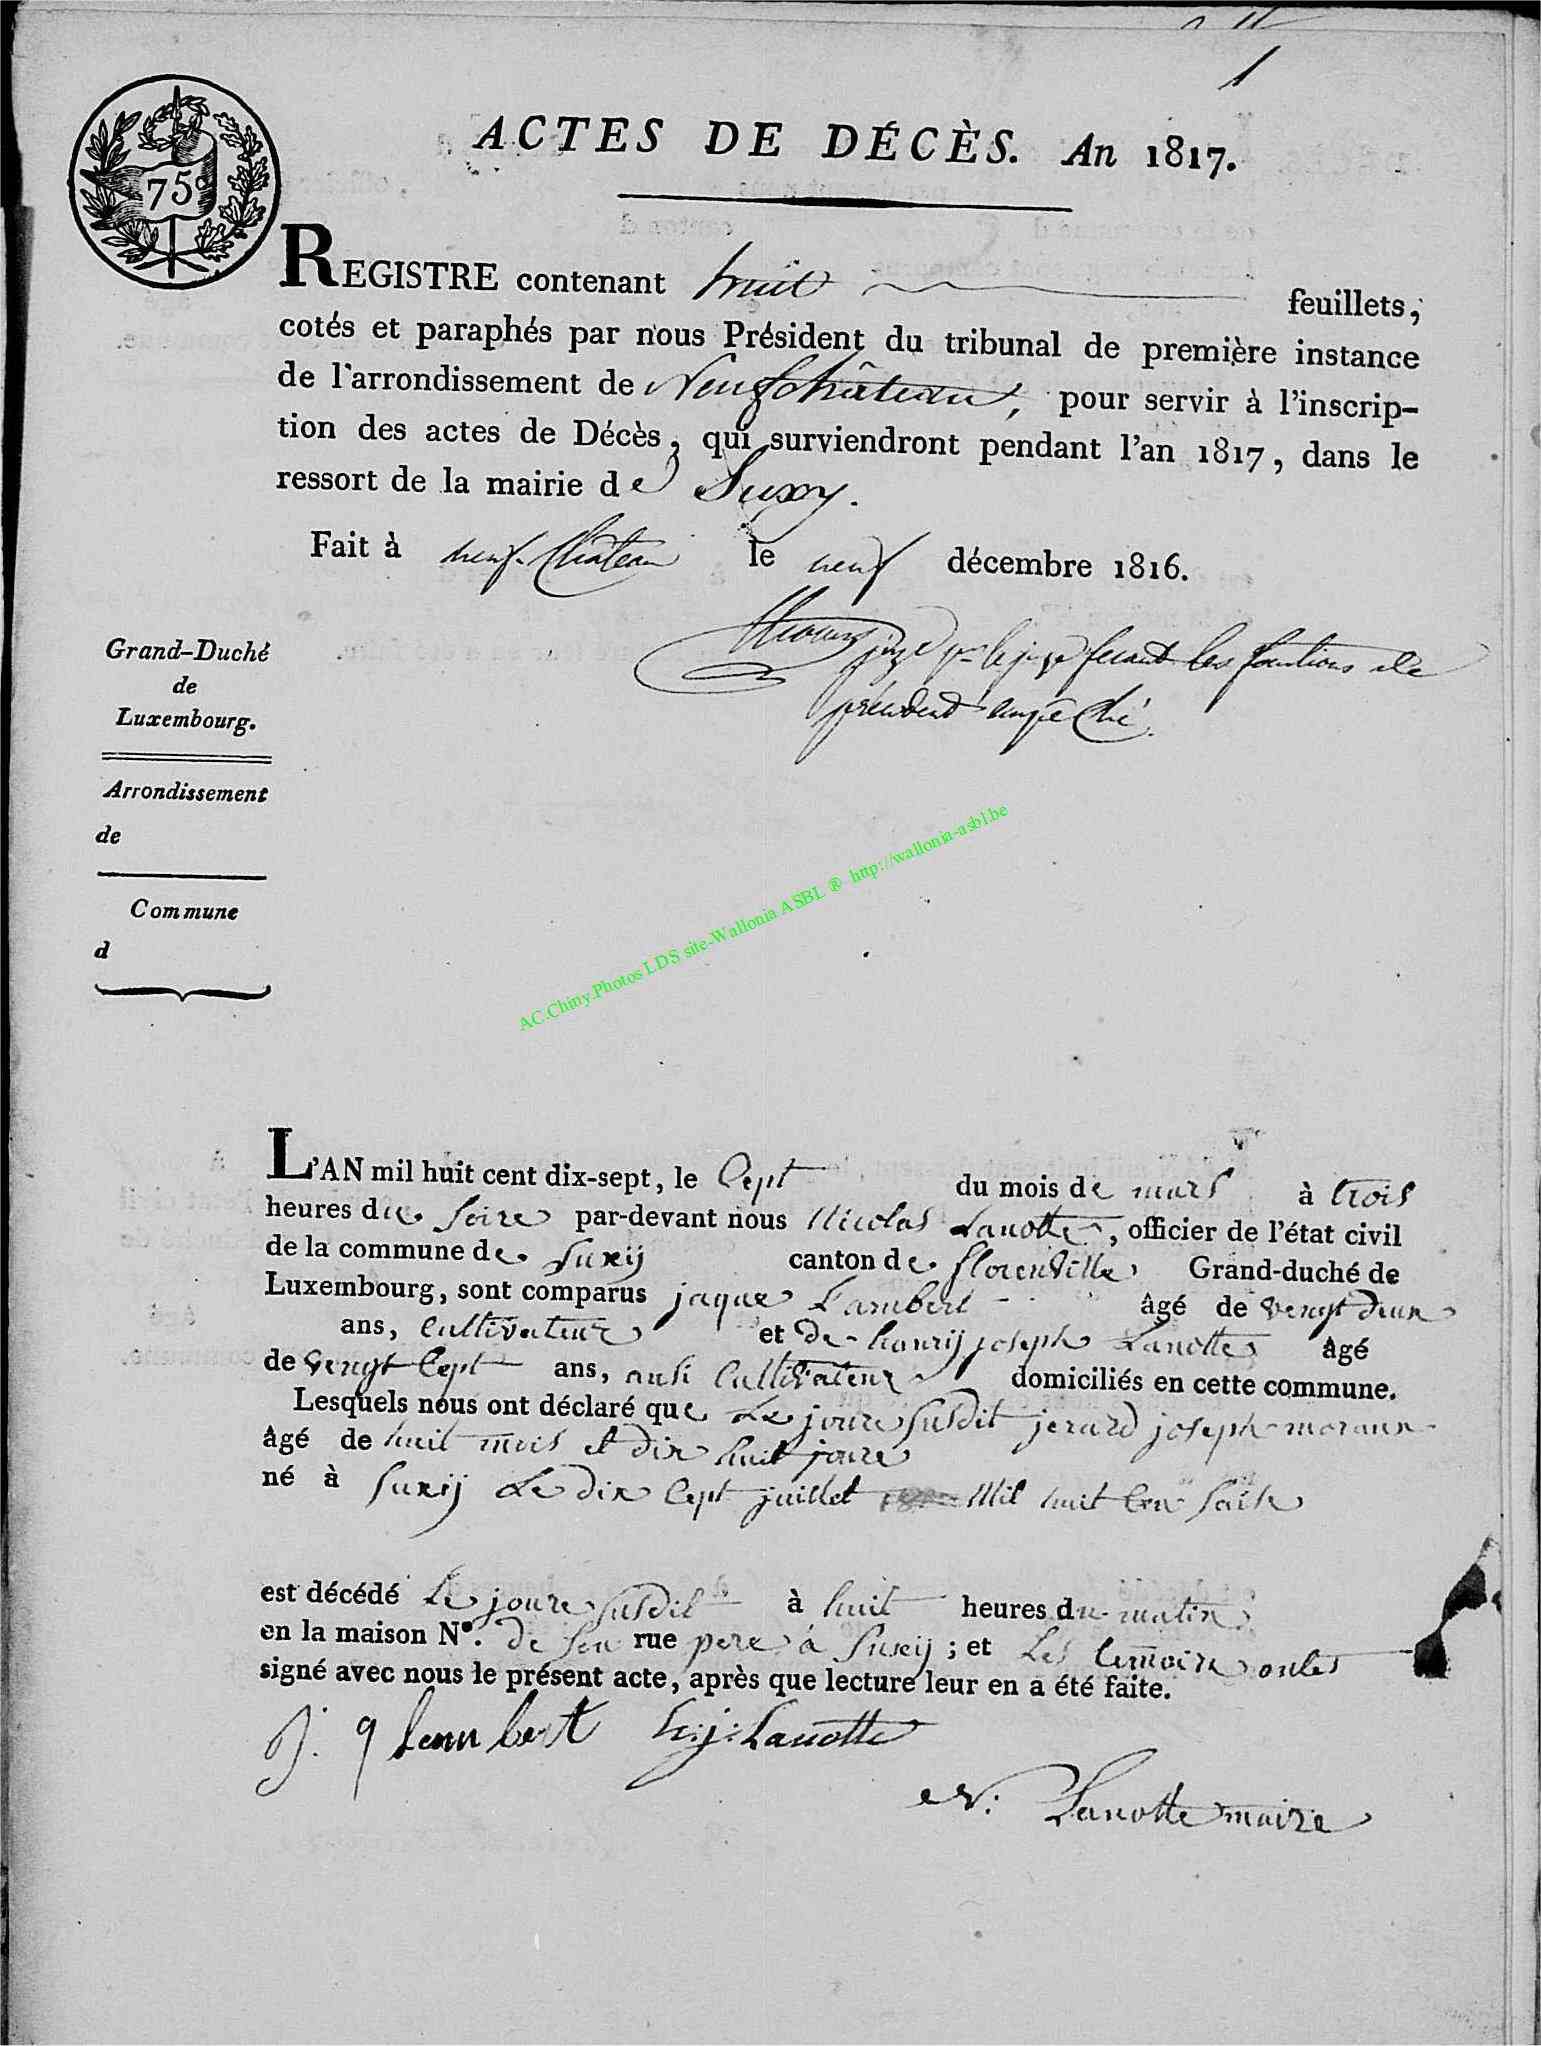 1
75c
ACTES DE DÉCÈS. An 1817.
REGISTRE contenant huit feuillets,
cotés et paraphés par nous Président du tribunal de première instance
de l'arrondissement de Neufchâteau, pour servir à l'inscrip-
tion des actes de Décès, qui surviendront pendant l'an 1817, dans le
ressort de la mairie de Suxy.
Fait à neufchâteau le neuf décembre 1816.
juge pr le juge fesant les fonctions de
président empêché.
Grand-Duché
de
Luxembourg.
Arrondissement
de
Commune
d
AC.Chiny.Photos LDS site-Wallonia ASBL ® http://wallonia-asbl.be
L'AN mil huit cent dix-sept, le sept du mois de mars à trois
heures du soire par-devant nous Nicolas Lanotte, officier de l'état civil
de la commune de Suxij canton de florenville Grand-duché de
Luxembourg, sont comparus jaque Lambert âgé de vengt deux
ans, cultivateur et de hanrij joseph Lanotte âgé
de vengt sept ans, ausi cultivateur domiciliés en cette commune.
Lesquels nous ont déclaré que le joure susdit jerard joseph moraux
âgé de huit mois et dix huit joure
né à Suxij le dix sept juillet Mil huit cen saise
est décédé le joure susdit à huit heures du matin
en la maison N°. de son rue pere à Suxij ; et les temoin ontes
signé avec nous le présent acte, après que lecture leur en a été faite.
J. q lambert h:j:Lanotte
N: Lanotte maire